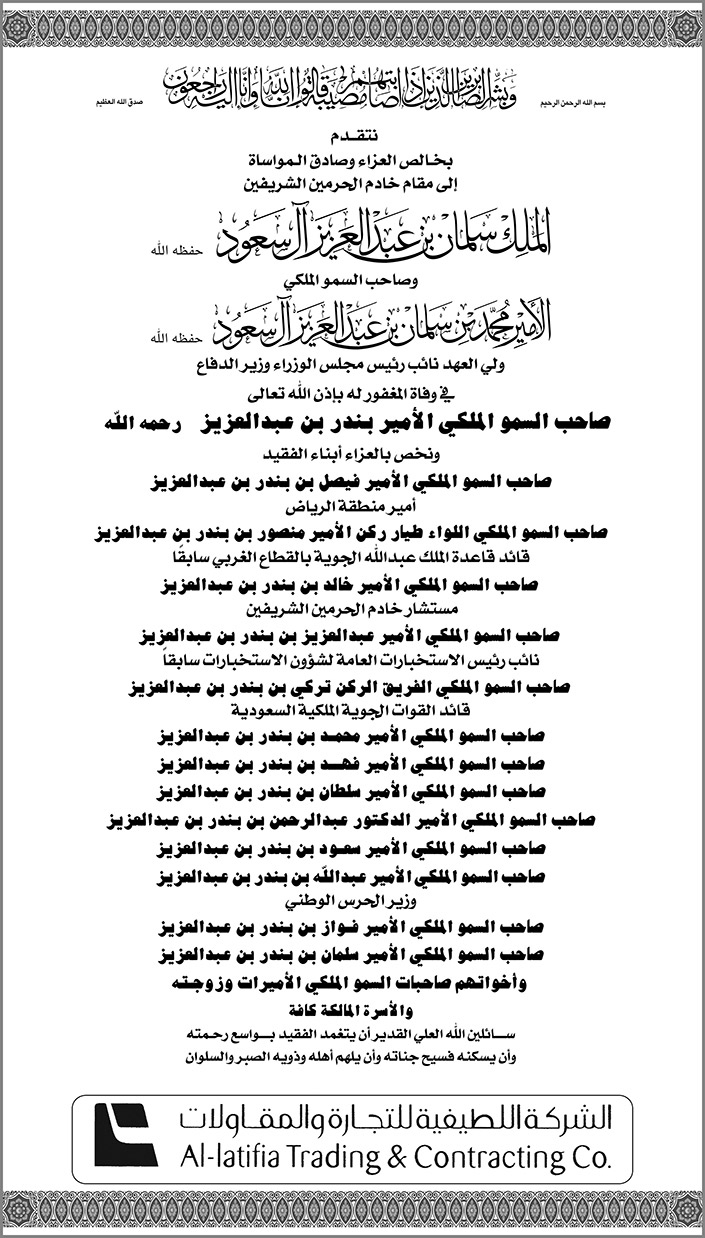 بسم الله الرحمن الرحيم وبشر الصابرين الذين إذا أصابتهم مصيبة قالوا إنا لله وإنا إليه راجعون صدق الله العظيم
نتقـدم
بخالص العزاء وصادق المواساة
إلى مقام خادم الحرمين الشريفين
الملك سلمان بن عبد العزيز آل سعود حفظه الله
وصاحب السمو الملكي
الأمير محمد بن سلمان بن عبد العزيز آل سعود حفظه الله
ولي العهد نائب رئيس مجلس الوزراء وزير الدفاع
في وفاة المغفور له بإذن الله تعالى
صاحب السمو الملكي الأمير بندر بن عبدالعزيز رحمه الله
ونخص بالعزاء أبناء الفقيد
صاحب السمو الملكي الأمير فيصل بن بندر بن عبدالعزيز
أمير منطقة الرياض
صاحب السمو الملكي اللواء طيار ركن الأمير منصور بن بندر بن عبدالعزيز
قائد قاعدة الملك عبدالله الجوية بالقطاع الغربي سابقًا
صاحب السمو الملكي الأمير خالد بن بندر بن عبدالعزيز
مستشار خادم الحرمين الشريفين
صاحب السمو الملكي الأمير عبدالعزيز بن بندر بن عبدالعزيز
نائب رئيس الاستخبارات العامة لشؤون الاستخبارات سابقاً
صاحب السمو الملكي الفريق الركن تركي بن بندر بن عبدالعزيز
قائد القوات الجوية الملكية السعودية
صاحب السمو الملكي الأمير محمـد بن بندر بن عبدالعزيز
صاحب السمو الملكي الأمير فهـد بن بندر بن عبدالعزيز
صاحب السمو الملكي الأمير سلطان بن بندر بن عبدالعزيز
صاحب السمو الملكي الأمير الدكتور عبدالرحمن بن بندر بن عبدالعزيز
صاحب السمو الملكي الأمير سعـود بن بندر بن عبدالعزيز
صاحب السمو الملكي الأمير عبدالله بن بندر بن عبدالعزيز
وزير الحرس الوطني
صاحب السمو الملكي الأمير فـواز بن بندر بن عبدالعزيز
صاحب السمو الملكي الأمير سلمان بن بندر بن عبدالعزيز
وأخواتهم صاحبات السمو الملكي الأميرات وزوجـته
والأسرة المالكة كافة
ســائلين الله العلي القدير أن يتغمد الفقيد بــواسع رحـمته
وأن يسكنه فسيح جناته وأن يلهم أهله وذويه الصبر والسلوان
الشركة اللطيفية للتجارة والمقاولات
Al-latifia Trading & Contracting Co.